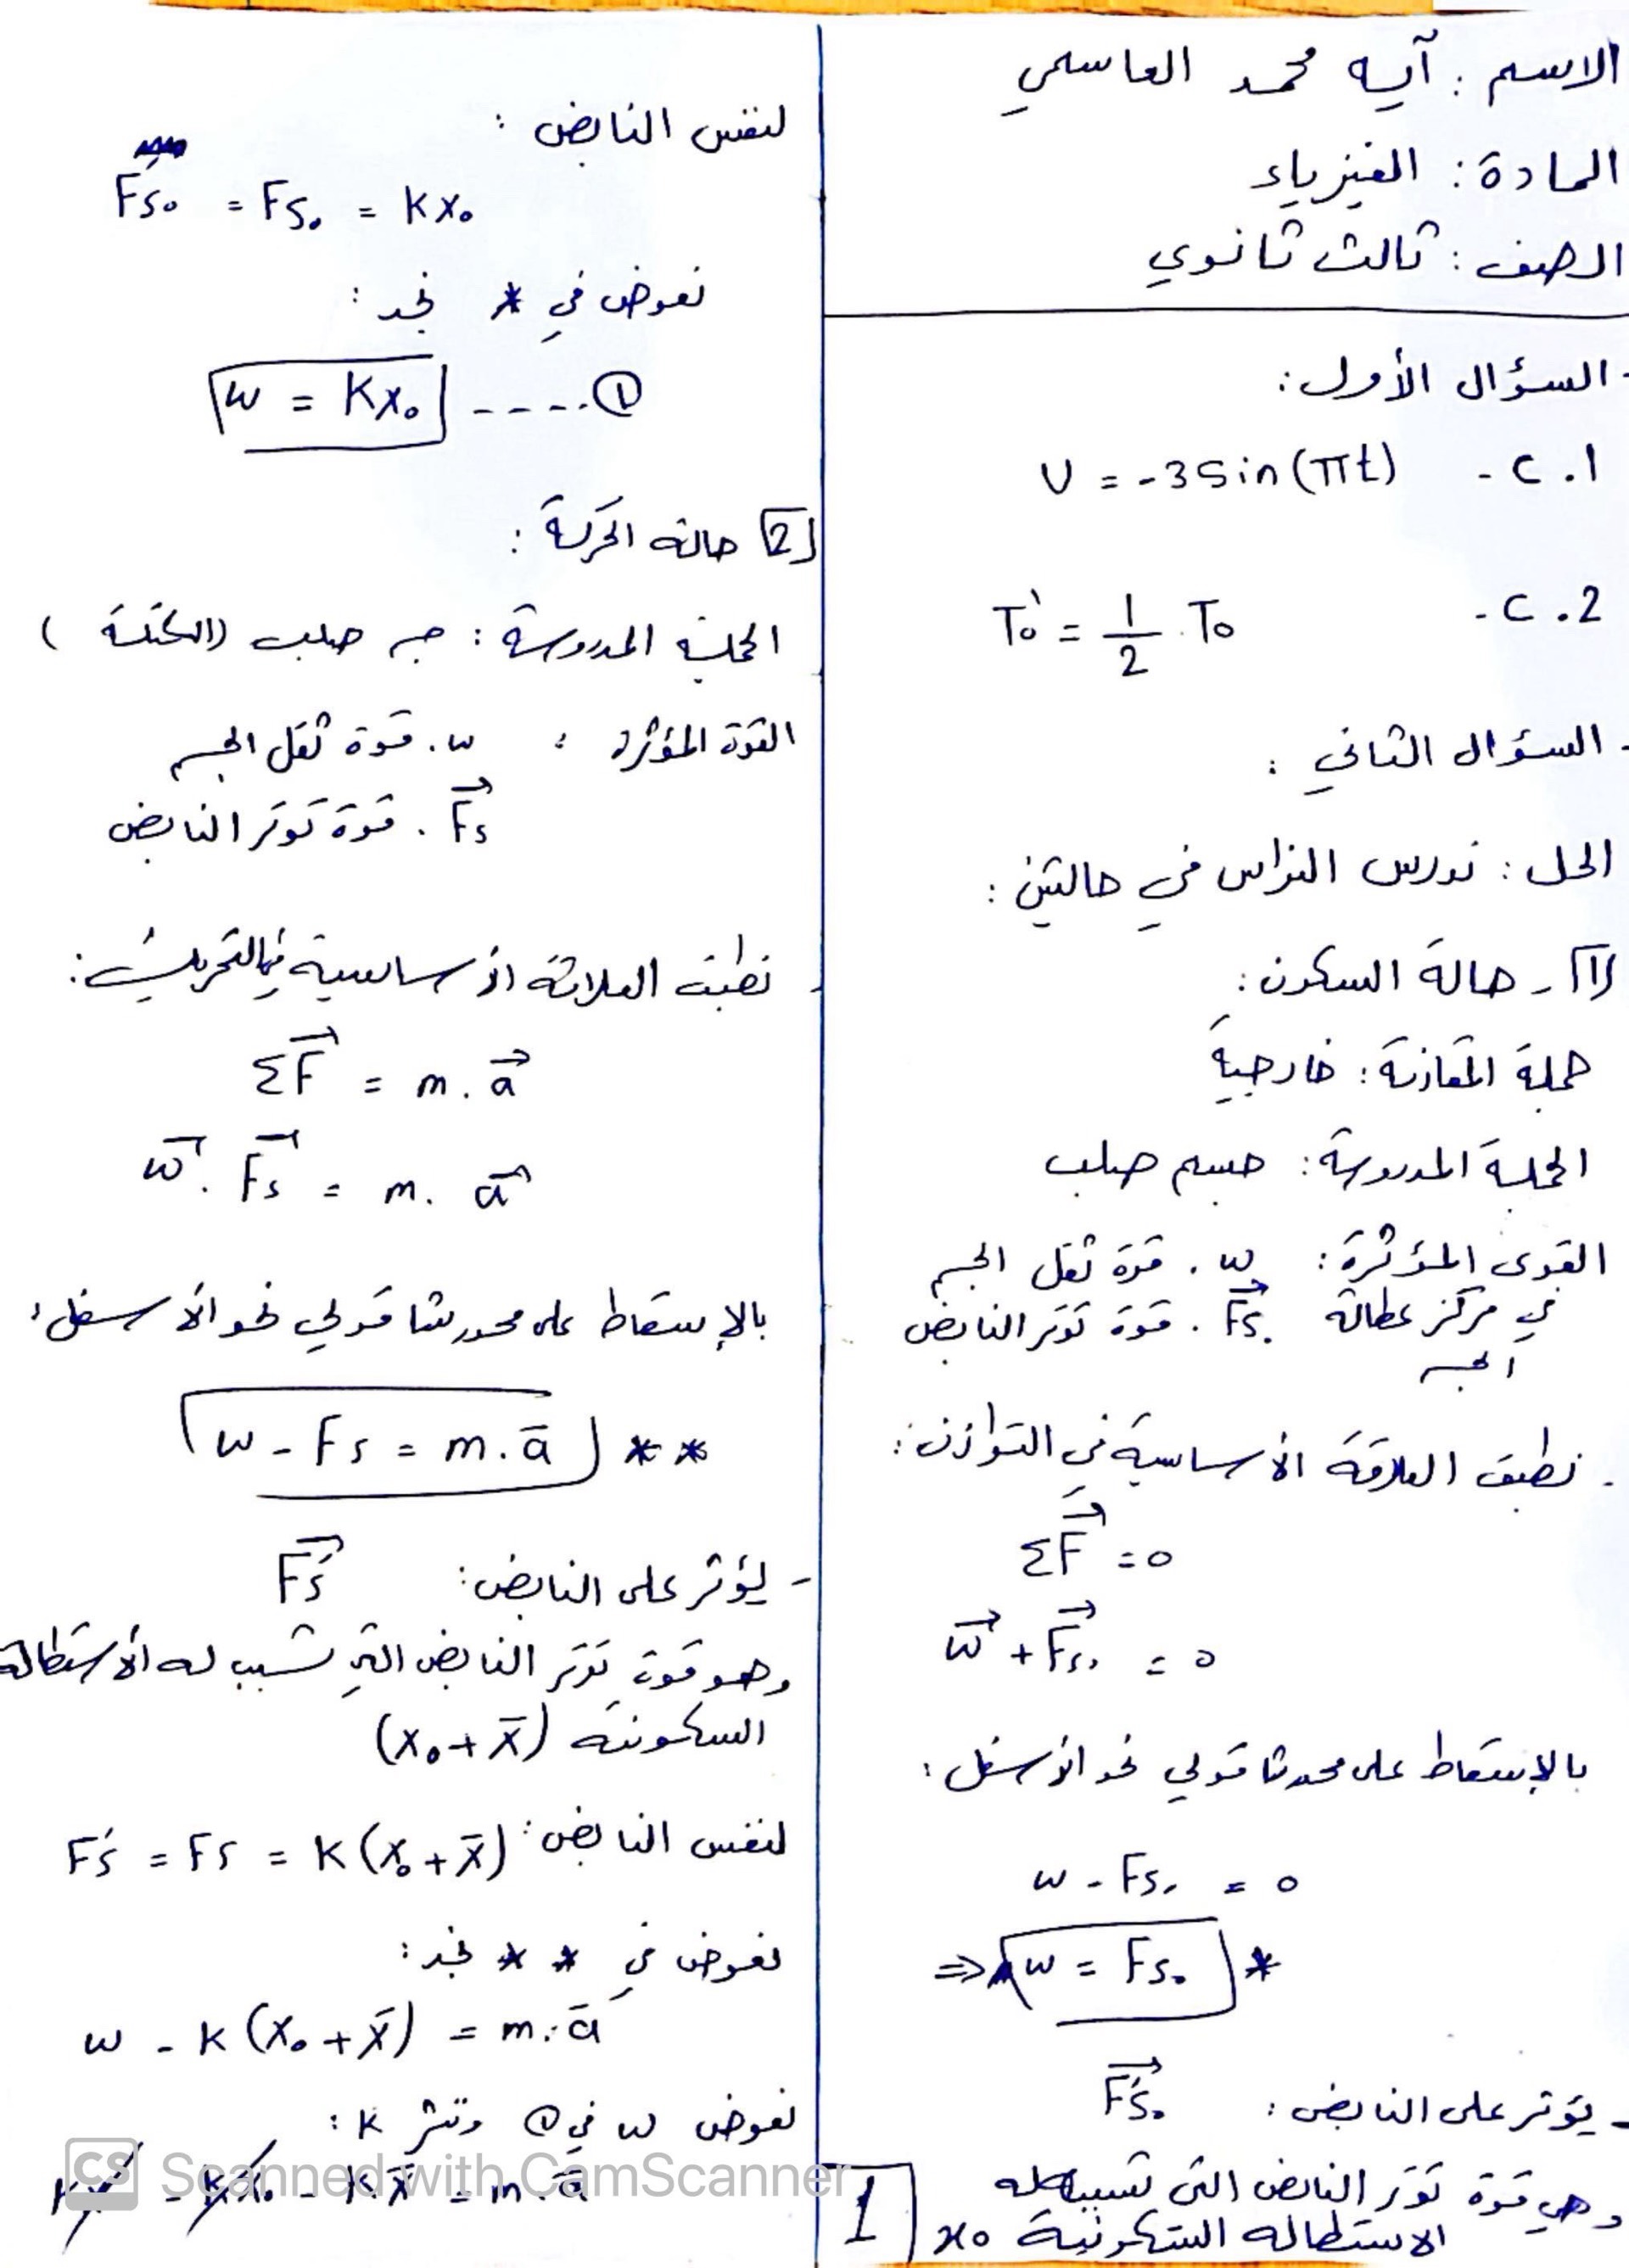 الاسم : آية محمد العاسمي
المادة : الفيزياء
الصف : ثالث ثانوي
- السؤال الأول :
1. C - v = -3 sin(πt)
2. C - T₀' = 1/2 . T₀
- السؤال الثاني :
الحل : ندرس النواس في حالتين :
1 - حالة السكون :
جملة المقارنة : خارجية
الجملة المدروسة : جسم صلب
القوى المؤثرة : w . قوة ثقل الجسم
في مركز عطالة الجسم
Fs₀ . قوة توتر النابض
- نطبق العلاقة الأساسية في التوازن :
ΣF = 0
w + Fs₀ = 0
بالإسقاط على محور شاقولي نحو الأسفل :
w - Fs₀ = 0
⇒ w = Fs₀ *
- يؤثر على النابض : F's₀
وهي قوة توتر النابض التي تسبب له
الاستطالة السكونية x₀
1
لنفس النابض :
F's₀ = Fs₀ = kx₀
نعوض في * نجد :
w = kx₀ ----- ①
2 حالة الحركة :
الجملة المدروسة : جسم صلب (الكتلة)
القوة المؤثرة : w . قوة ثقل الجسم
Fs . قوة توتر النابض
- نطبق العلاقة الأساسية في التحريك :
ΣF = m . a
w . Fs = m . a
بالإسقاط على محور شاقولي نحو الأسفل :
w - Fs = m . a̅ **
- يؤثر على النابض : F's
وهو قوة توتر النابض التي تسبب له الاستطالة
السكونية (x₀ + x̅)
لنفس النابض : F's = Fs = k(x₀ + x̅)
نعوض في ** نجد :
w - k(x₀ + x̅) = m . a̅
نعوض w في ① وننشر k :
kx₀ - kx₀ - kx̅ = m . a̅
CS Scanned with CamScanner